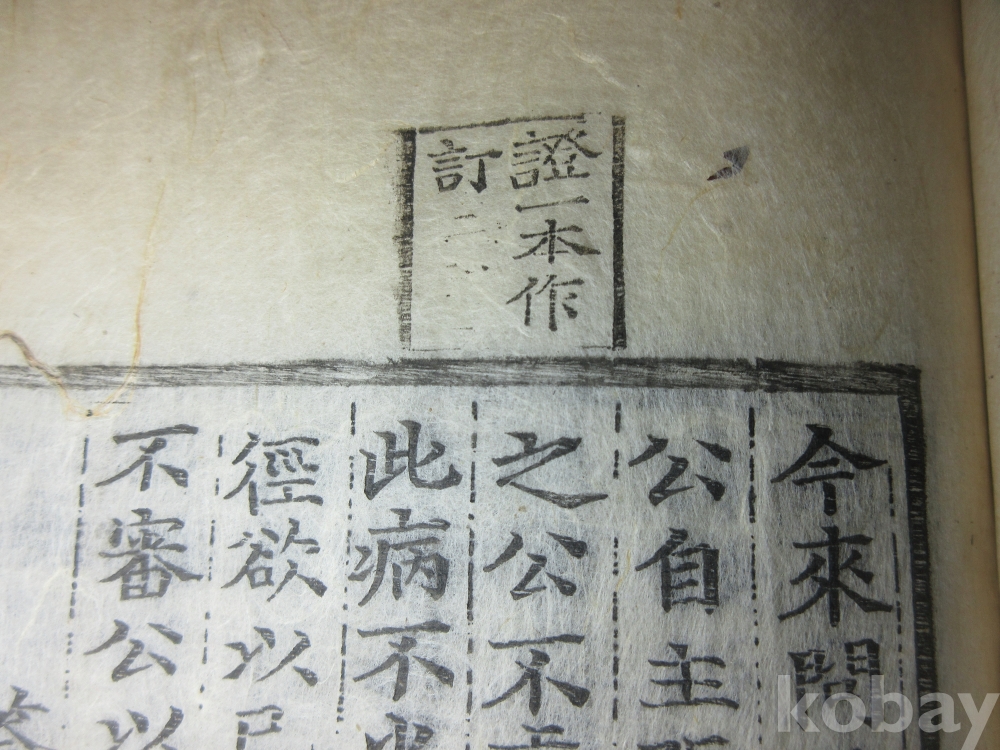 證一本作
訂
今來
公自主
之公不
此病不
徑欲以
不審公以
kobay